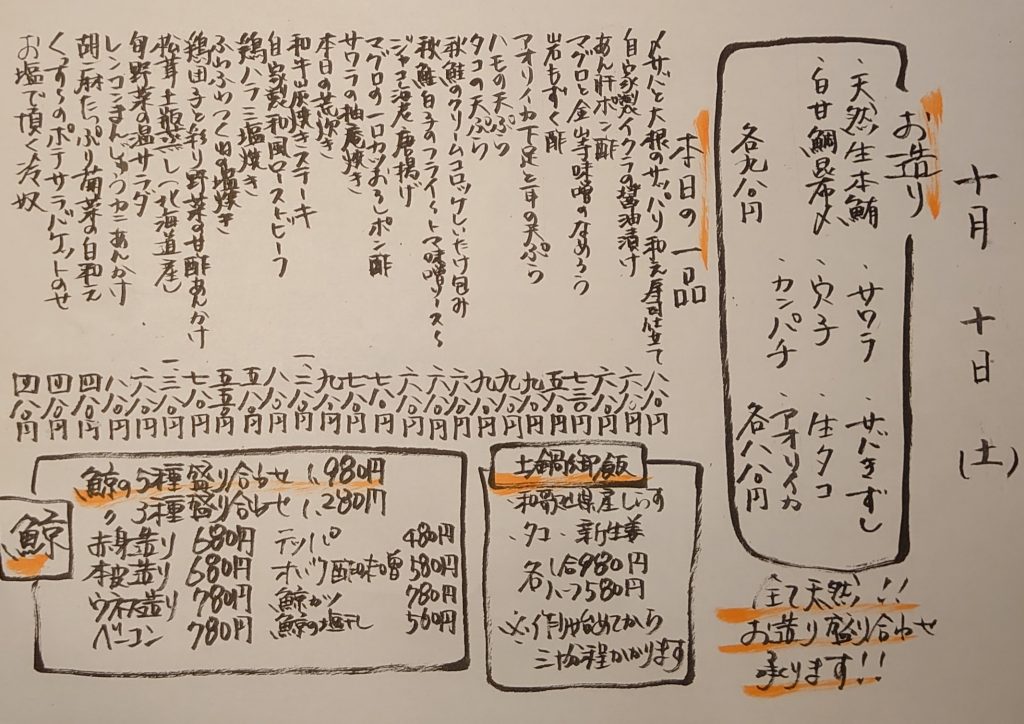 十月十日(土)
お造り
・天然生本鮪
・白甘鯛昆布〆
各九八〇円
・サワラ
・穴子
・カンパチ
・サバきずし
・生タコ
・アオリイカ
各八八〇円
全て天然!!
お造り盛り合わせ
承ります!!
本日の一品
〆サバと大根のサッパリ和え寿司仕立て 八八〇円
自家製イクラの醤油漬け 六八〇円
あん肝ポン酢 六八〇円
マグロと金山寺味噌のなめろう 七三〇円
岩もずく酢 五八〇円
アオリイカ下足と耳の天ぷら 九八〇円
ハモの天ぷら 九八〇円
タコの天ぷら 九八〇円
秋鮭のクリームコロッケしいたけ包み 六八〇円
秋鮭白子のフライ トマト味噌ソース 六八〇円
ジャコと海老唐揚げ 六八〇円
マグロの一口カツおろしポン酢 七八〇円
サワラの柚庵焼き 八八〇円
本日の荒炊き 九八〇円
和牛山灰焼きステーキ 一、二八〇円
自家製和風ローストビーフ 八八〇円
鶏ハラミ塩焼き 五八〇円
ふわふわつくねの塩焼き 五五〇円
鶏団子と彩り野菜の甘酢あんかけ 七八〇円
松茸土瓶蒸し(北海道産) 一、三八〇円
旬野菜の温サラダ 六八〇円
レンコンまんじゅうカニあんかけ 八八〇円
胡麻たっぷり菊菜の白和え 四八〇円
くんすらのポテサラバゲットのせ 四八〇円
お塩で頂く冷奴 四八〇円
土鍋御飯
・和歌山県産しらす
・タコ ・新生姜
各 一合980円
ハーフ580円
※作り始めてから
三十分程かかります
鯨
鯨の5種盛り合わせ 1,980円
〃 3種盛り合わせ 1,280円
赤身造り 680円
本皮造り 680円
ウネ造り 780円
ベーコン 780円
テッパ 480円
オバケ酢味噌 580円
鯨カツ 780円
鯨の塩干し 560円